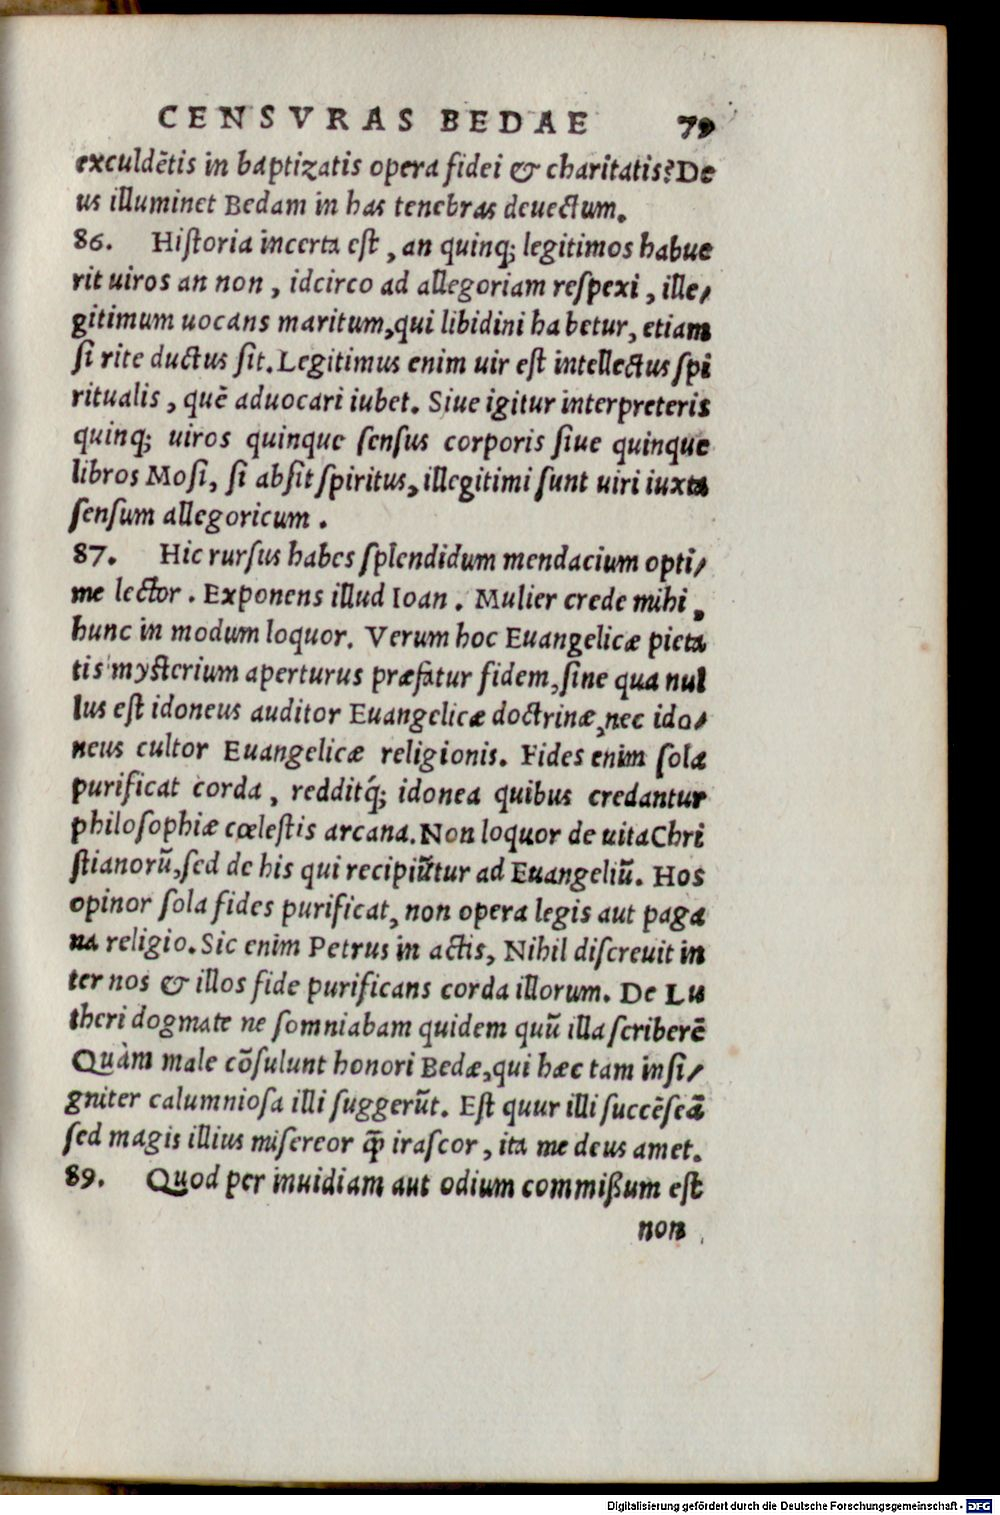 CENSVRAS BEDAE 79
exculdẽtis in baptizatis opera fidei & charitatis? De
us illuminet Bedam in has tenebras deuectum.
86. Historia incerta est, an quinq; legitimos habue
rit uiros an non, idcirco ad allegoriam respexi, ille/
gitimum uocans maritum, qui libidini habetur, etiam
si rite ductus sit. Legitimus enim uir est intellectus spi
ritualis, quẽ aduocari iubet. Siue igitur interpreteris
quinq; uiros quinque sensus corporis siue quinque
libros Mosi, si absit spiritus, illegitimi sunt uiri iuxta
sensum allegoricum.
87. Hic rursus habes splendidum mendacium opti/
me lector. Exponens illud Ioan. Mulier crede mihi,
hunc in modum loquor. Verum hoc Euangelicæ pieta
tis mysterium aperturus præfatur fidem, sine qua nul
lus est idoneus auditor Euangelicæ doctrinæ, nec ido/
neus cultor Euangelicæ religionis. Fides enim sola
purificat corda, redditq́; idonea quibus credantur
philosophiæ cœlestis arcana. Non loquor de uita Chri
stianorũ, sed de his qui recipiũtur ad Euangeliũ. Hos
opinor sola fides purificat, non opera legis aut paga
na religio. Sic enim Petrus in actis, Nihil discreuit in
ter nos & illos fide purificans corda illorum. De Lu
theri dogmate ne somniabam quidem quũ illa scriberẽ
Quàm male cõsulunt honori Bedæ, qui hæc tam insi/
gniter calumniosa illi suggerũt. Est quur illi succẽseã
sed magis illius misereor q̃ irascor, ita me deus amet.
89. Quod per inuidiam aut odium commißum est
non
Digitalisierung gefördert durch die Deutsche Forschungsgemeinschaft - DFG